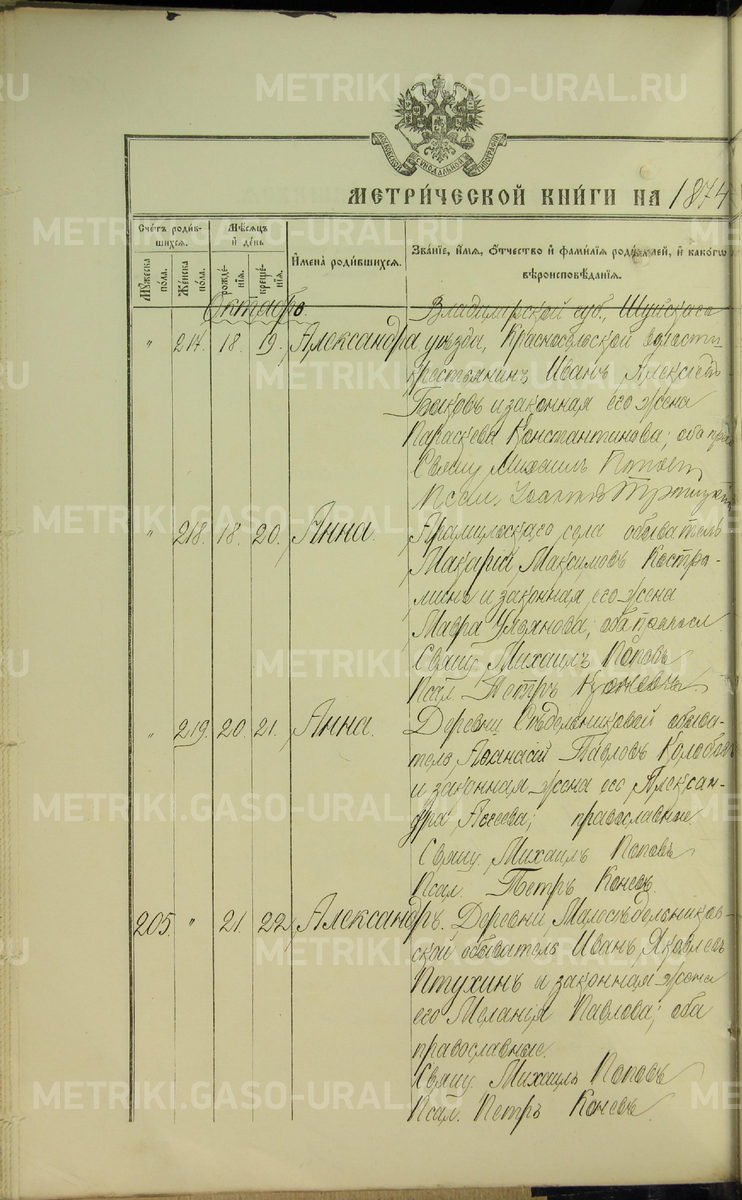 METRIKI.GASO-URAL.RU
МЕТРИ́ЧЕСКОЙ КНИ́ГИ НА 1874
Сче́тъ роди́вшихся.
Мѣ́сяцъ и де́нь
Мꙋ́жеска по́ла.
Же́нска по́ла.
рожде́нїя.
креще́нїя.
И҆мена̀ роди́вшихся.
Зва́нїе, и҆́мя, ѻ҆́тчество и҆ фами́лїя роди́телей, и҆ како́гѡ вѣроисповѣ́данїя.
Октябрь.
" 217. 18. 19. Александра
Владимірской губ., Шуйскаго
уѣзда, Красносельской волости
крестьянинъ Иванъ Алексѣевъ
Быковъ и законная его жена
Параскева Константинова; оба прав
Свящ. Михаилъ Поповъ
Псал. Іоаннъ Троицкій
" 218. 18. 20. Анна.
Арамильскаго села обыватель
Макарій Максимовъ Костро-
минъ и законная его жена
Мавра Ульянова; оба правосл.
Свящ. Михаилъ Поповъ
Псал. Петръ Коневъ
" 219. 20. 21. Анна.
Деревни Сѣдельниковой обыва-
тель Аѳанасій Павловъ Колобовъ
и законная жена его Алексан-
дра Агеева; православные.
Свящ. Михаилъ Поповъ
Псал. Петръ Коневъ
205. " 21. 22. Александръ.
Деревни Малосѣдельников-
ской обыватель Иванъ Яковлевъ
Птухинъ и законная жена
его Меланія Павлова; оба
православные.
Свящ. Михаилъ Поповъ
Псал. Петръ Коневъ